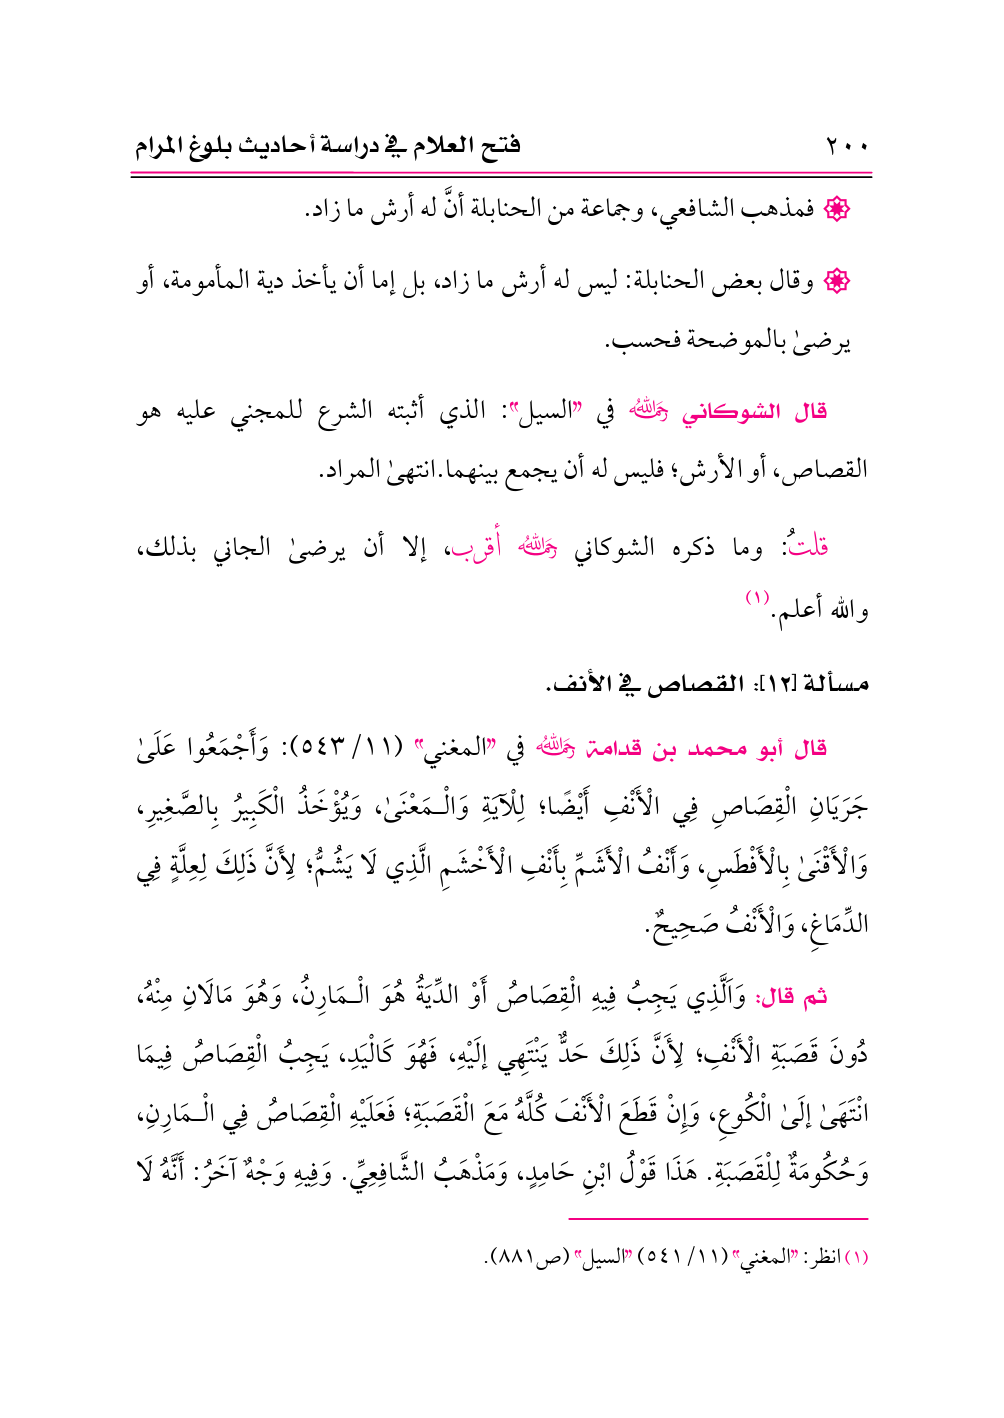 ٢٠٠ فتح العلام في دراسة أحاديث بلوغ المرام
فمذهب الشافعي، وجماعة من الحنابلة أنَّ له أرش ما زاد.
وقال بعض الحنابلة: ليس له أرش ما زاد، بل إما أن يأخذ دية المأمومة، أو
يرضىٰ بالموضحة فحسب.
قال الشوكاني رحمه الله في "السيل": الذي أثبته الشرع للمجني عليه هو
القصاص، أو الأرش؛ فليس له أن يجمع بينهما.انتهىٰ المراد.
قلتُ: وما ذكره الشوكاني رحمه الله أقرب، إلا أن يرضىٰ الجاني بذلك،
والله أعلم.(١)
مسألة [١٢]: القصاص في الأنف.
قال أبو محمد بن قدامة رحمه الله في "المغني" (١١/ ٥٤٣): وَأَجْمَعُوا عَلَىٰ
جَرَيَانِ الْقِصَاصِ فِي الْأَنْفِ أَيْضًا؛ لِلْآيَةِ وَالْـمَعْنَىٰ، وَيُؤْخَذُ الْكَبِيرُ بِالصَّغِيرِ،
وَالْأَقْنَىٰ بِالْأَفْطَسِ، وَأَنْفُ الْأَشَمِّ بِأَنْفِ الْأَخْشَمِ الَّذِي لَا يَشُمُّ؛ لِأَنَّ ذَلِكَ لِعِلَّةٍ فِي
الدِّمَاغِ، وَالْأَنْفُ صَحِيحٌ.
ثم قال: وَاَلَّذِي يَجِبُ فِيهِ الْقِصَاصُ أَوْ الدِّيَةُ هُوَ الْـمَارِنُ، وَهُوَ مَالَانِ مِنْهُ،
دُونَ قَصَبَةِ الْأَنْفِ؛ لِأَنَّ ذَلِكَ حَدٌّ يَنْتَهِي إلَيْهِ، فَهُوَ كَالْيَدِ، يَجِبُ الْقِصَاصُ فِيمَا
انْتَهَىٰ إلَىٰ الْكُوعِ، وَإِنْ قَطَعَ الْأَنْفَ كُلَّهُ مَعَ الْقَصَبَةِ؛ فَعَلَيْهِ الْقِصَاصُ فِي الْـمَارِنِ،
وَحُكُومَةٌ لِلْقَصَبَةِ. هَذَا قَوْلُ ابْنِ حَامِدٍ، وَمَذْهَبُ الشَّافِعِيِّ. وَفِيهِ وَجْهٌ آخَرُ: أَنَّهُ لَا
(١) انظر: "المغني" (١١/ ٥٤١) "السيل" (ص٨٨١).